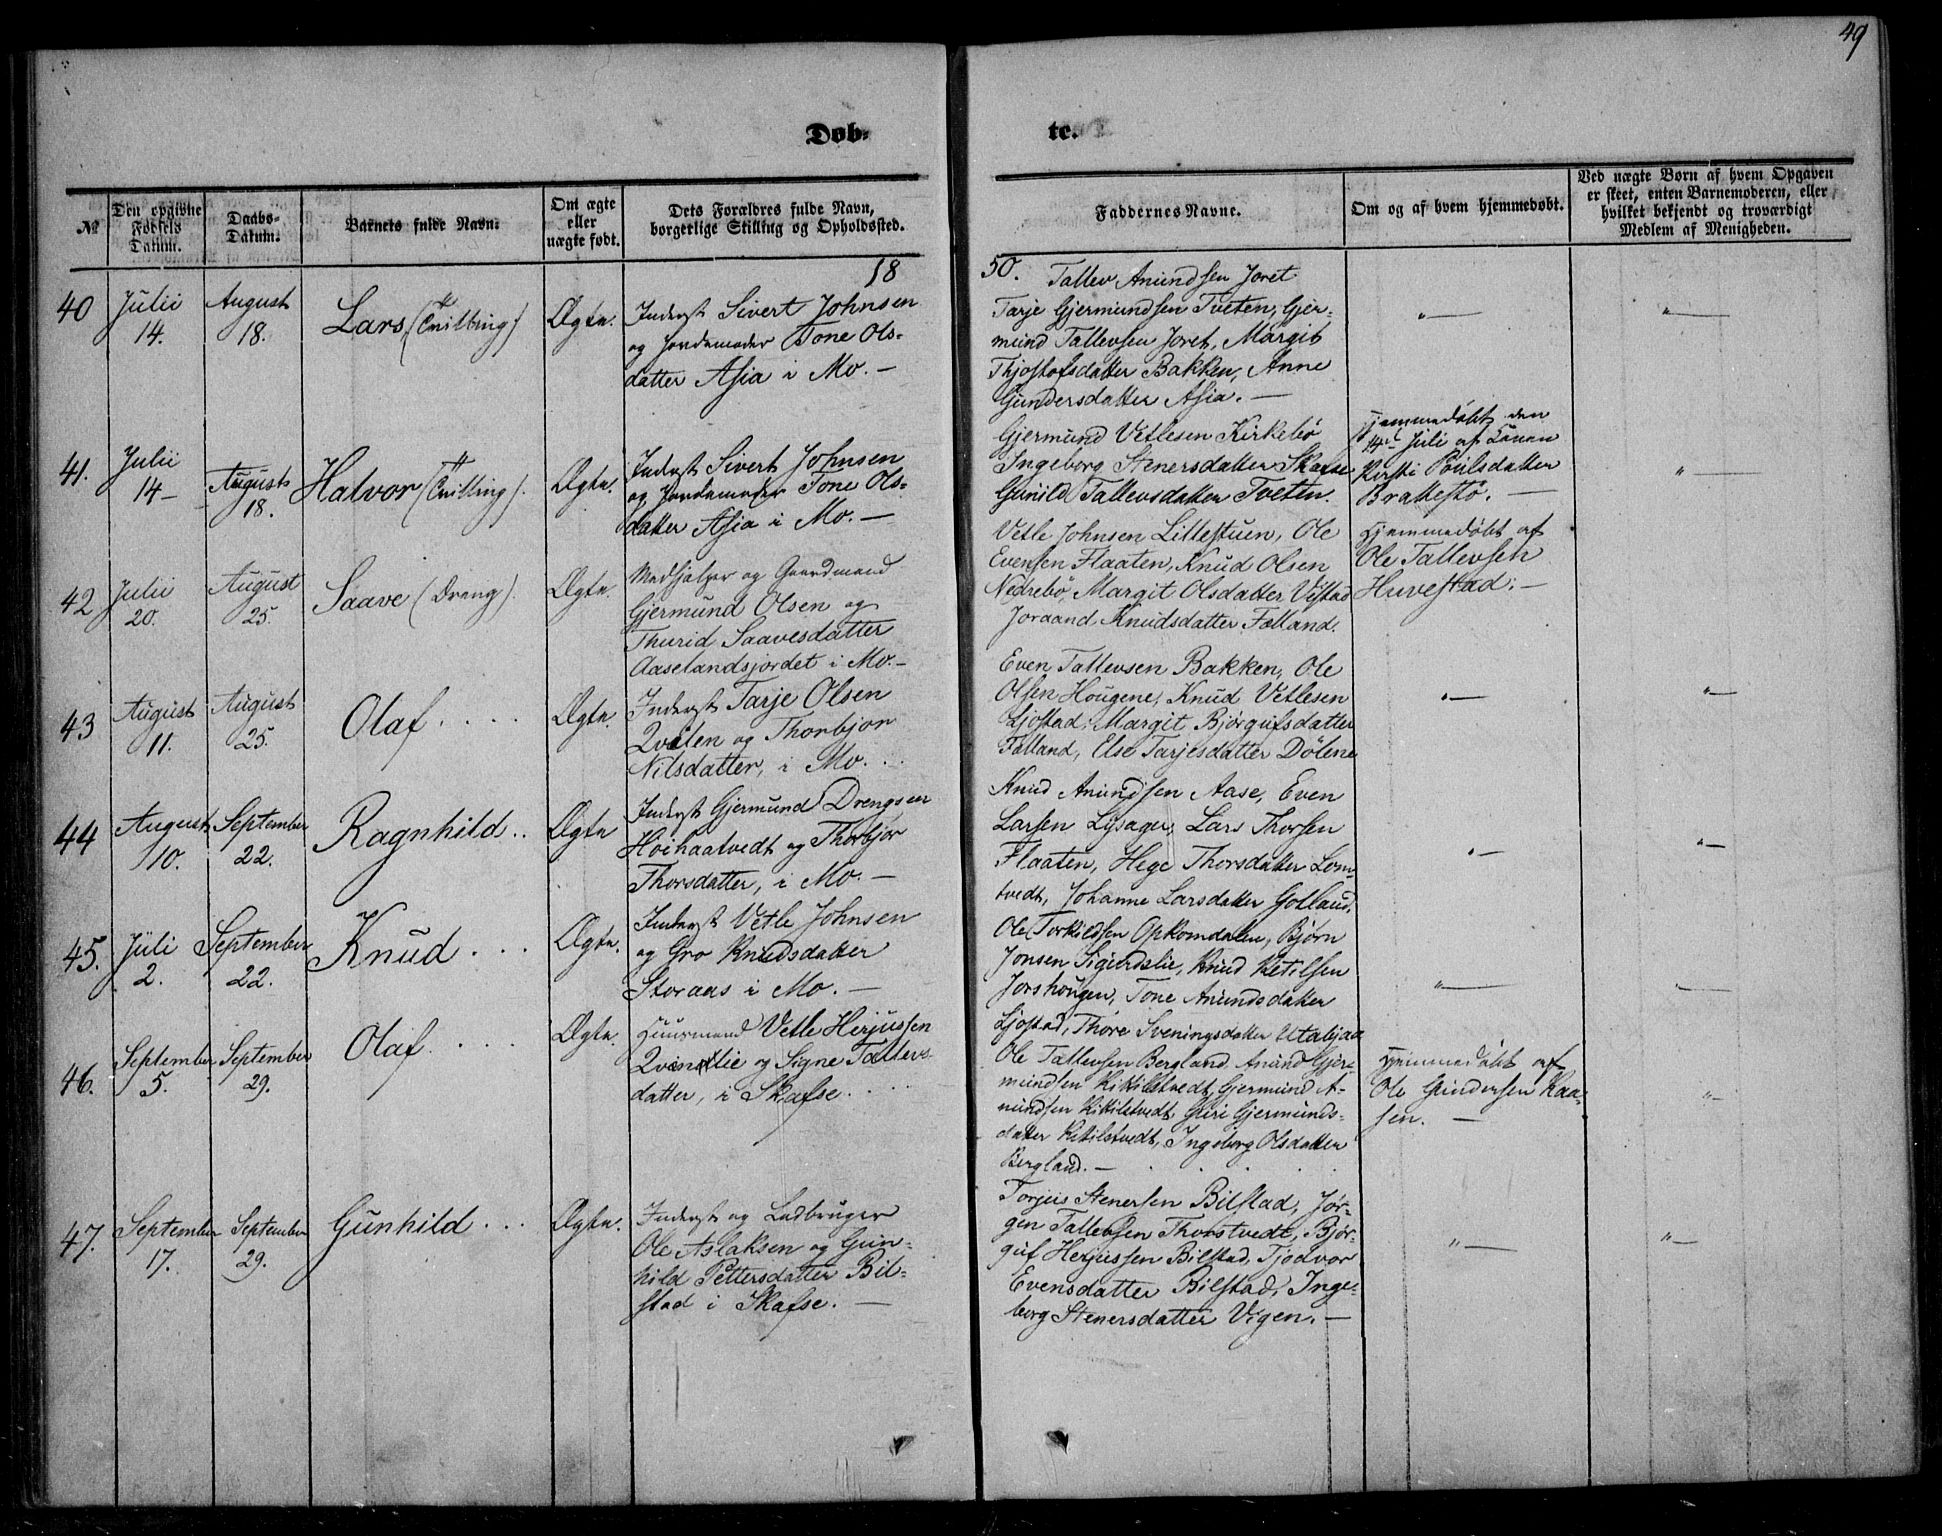 49
Døb-
te.
№
Den opgivne
Fødsels
Datum.
Daabs-
Datum.
Barnets fulde Navn.
Om ægte
eller
uægte født.
Dets Forældres fulde Navn,
borgerlige Stilling og Opholdssted.
Faddernes Navne.
Om og af hvem hjemmedøbt.
Ved uægte Børn af hvem Opgaven
er skeet, enten Barnemoderen, eller
hvilket bekjendt og troværdigt
Medlem af Menigheden.
18
50.
40
Julii
14.
August
18.
Lars (Tvilling)
Ægte.
Inderst Sivert Johnsen
og Jordemoder Tone Ols-
datter Asia i Mo. —
Tallev Anundsen Joret
Tarje Gjermundsen Tveten, Gjer-
mund Tallevsen Joret, Margit
Thjostofsdatter Bakken, Anne
Gundersdatter Asia. —
" —
" —
41.
Julii
14 —
August
18.
Halvor (Tvilling).
Ægte.
Inderst Sivert Johnsen
og Jordemoder Tone Ols-
datter Asia i Mo. —
Gjermund Vetlesen Kirkebø
Ingeborg Stenersdatter Skafse
Gunild Tallevsdatter Tveten.
Hjemmedøbt den
14de Juli af Konen
Kirsti Poulsdatter
Brattestø. —
" —
42
Julii
20.
August
25.
Saave (Dreng).
Ægte.
Medhjælper og Gaardmand
Gjermund Olsen og
Thurid Saavesdatter
Aaselandsjordet i Mo. —
Vetle Johnsen Littestuen, Ole
Evensen Flaaten, Knud Olsen
Nedrebø, Margit Olsdatter Vistad
Joraand Knudsdatter Falland.
Hjemmedøbt af
Ole Tallevsen
Huvestad. —
43
August
11.
August
25.
Olaf . . . .
Ægte.
Inderst Tarje Olsen
Qvålen og Thorbjør
Nilsdatter, i Mo. . .
Even Tallevsen Bakken, Ole
Olsen Hougene, Knud Vetlesen
Ljostad, Margit Bjørgufsdatter
Falland, Else Tarjesdatter Dølene
" —
" —
44
August
10.
September
22.
Ragnhild . .
Ægte
Inderst Gjermund Drengsen
Høihaatvedt og Thorbjør
Thorsdatter, i Mo. —
Knud Anundsen Aase, Even
Larsen Lysager, Lars Thorsen
Flaaten, Hege Thorsdatter Lom-
tvedt, Johanne Larsdatter Golland.
" —
" —
45.
Juli
2.
September
22.
Knud . . .
Ægte.
Inderst Vetle Johnsen
og Gro Knudsdatter
Storaas i Mo. —
Ole Torkildsen Opkomdalen, Bjørn
Jonsen Sigurdslie, Knud Ketilsen
Jorshougen, Tone Anundsdatter
Ljostad, Thore Sveningsdatter Utabjaa
" —
" —
46.
September
5.
September
29.
Olaf. . . .
Ægte.
Huusmand Vetle Herjussen
Qvindlie og Signe Tallevs-
datter, i Skafse. . . .
Ole Tallevsen Bergland. Anund Gjer-
mundsen Kitilstvedt, Gjermund A-
nundsen Kitilstvedt, Guri Gjermunds-
datter Kitilstvedt, Ingeborg Olsdatter
Bergland. —
Hjemmedøbt af
Ole Gundersen Kaa-
sen. —
" —
47.
September
17.
September
29.
Gunhild . . .
Ægte.
Inderst og Ledbruger
Ole Aslaksen og Gun-
hild Pettersdatter Bil-
stad i Skafse. —
Torjus Stenersen Bilstad, Jør-
gen Tallevsen Thorstvedt, Bjør-
guf Herjussen Bilstad, Tjodvor
Evensdatter Bilstad, Inge-
borg Stenersdatter Vigen. —
" —
" —